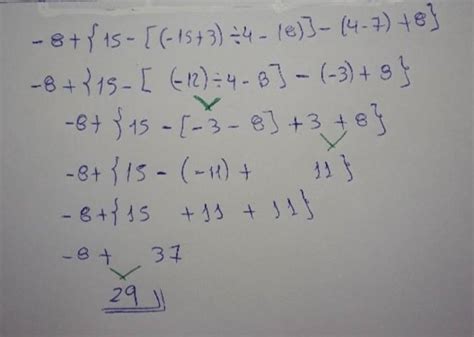 -8+{15-[(-15+3)÷4-(8)]-(4-7)+8}
-8+{15-[ (-12)÷4-8]-(-3)+8}
-8+{15-[-3-8]+3+8}
-8+{15-(-11)+ 11}
-8+{15 +11 +11}
-8+ 37
29